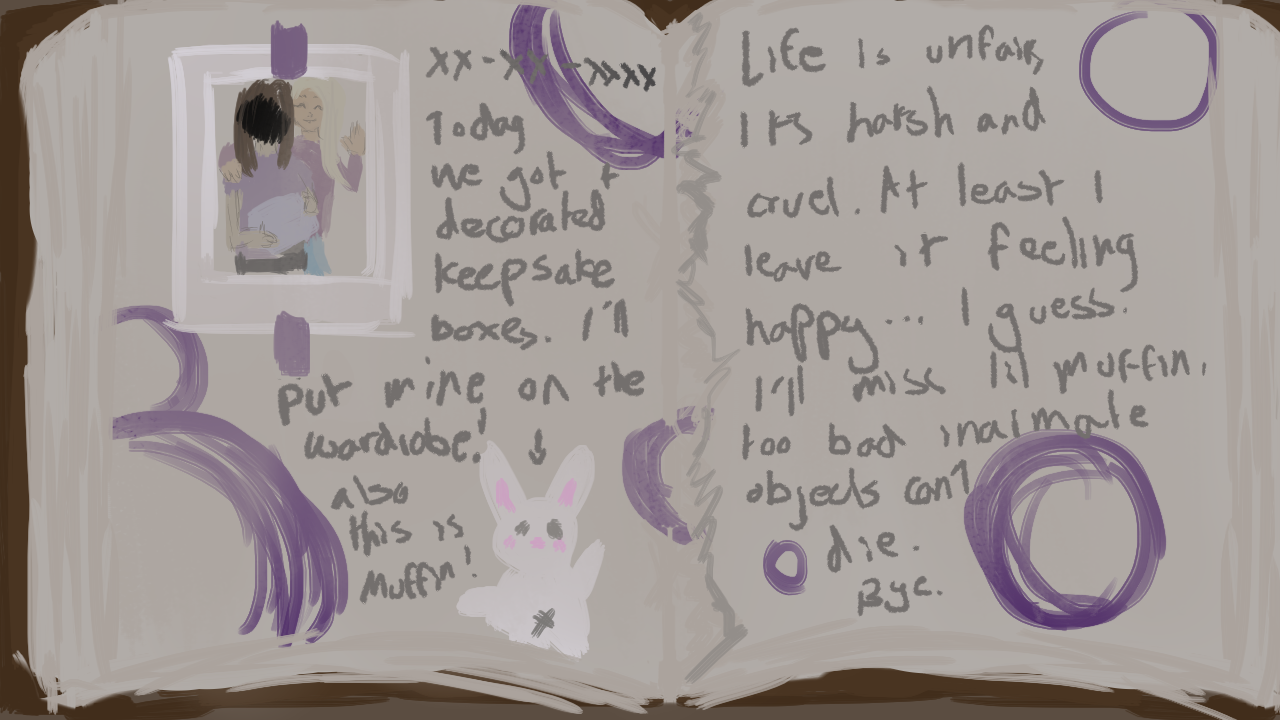 xx-xx-xxxx
Today
we got +
decorated
keepsake
boxes. I'll
put mine on the
wardrobe!
also
this is
Muffin!
Life is unfair,
It's harsh and
cruel. At least I
leave it feeling
happy... I guess.
I'll miss lil muffin,
too bad inaimate
objects can't
die.
Bye.